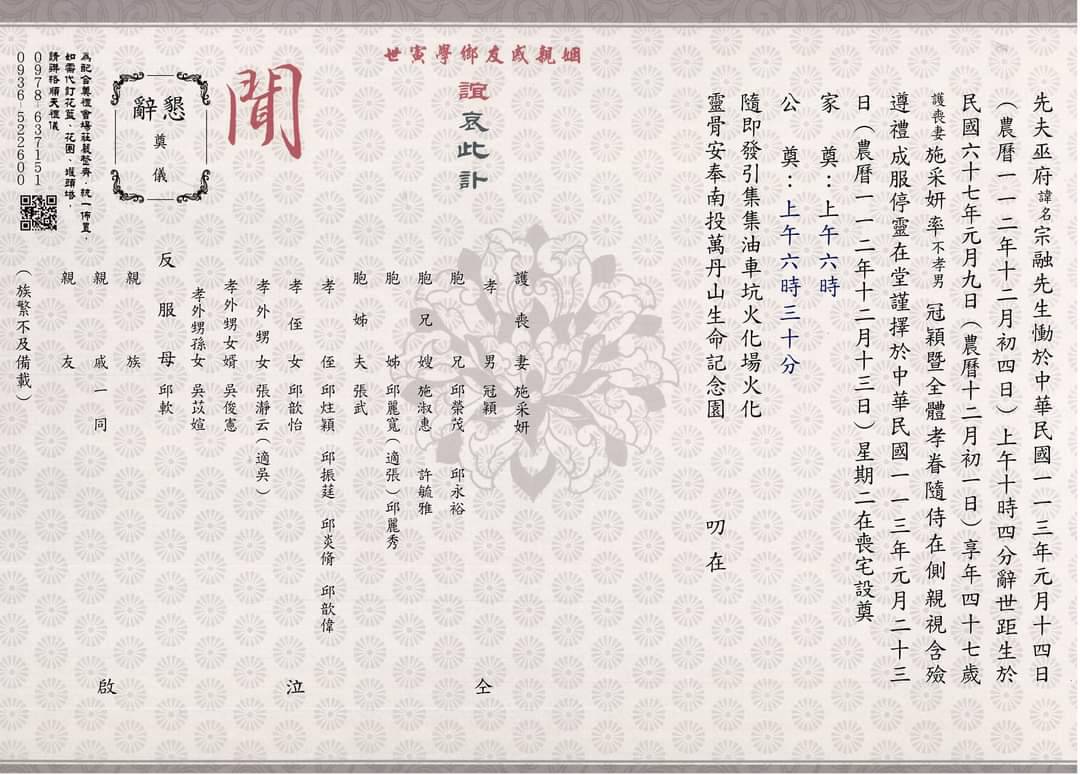 先夫巫府諱名宗融先生慟於中華民國一一三年元月十四日
(農曆一一二年十二月初四日)上午十時四分辭世距生於
民國六十七年元月九日(農曆十二月初一日)享年四十七歲
護喪妻施采妍率不孝男 冠穎暨全體孝眷隨侍在側親視含殮
遵禮成服停靈在堂謹擇於中華民國一一三年元月二十三
日(農曆一一二年十二月十三日)星期二在喪宅設奠
家 奠:上午六時
公 奠:上午六時三十分
隨即發引集集油車坑火化場火化
靈骨安奉南投萬丹山生命記念園
叨在
姻親戚友鄉學寅世
誼哀此訃
聞
護喪妻 施采妍
孝男 冠穎
胞兄 邱榮茂 邱永裕
胞兄嫂 施淑惠 許毓雅
胞姊 邱麗寬(適張)邱麗秀
胞姊夫 張武
孝侄 邱炷穎 邱振莛 邱炎脩 邱歆偉
孝侄女 邱歆怡
孝外甥女 張瀞云(適吳)
孝外甥女婿 吳俊憲
孝外甥孫女 吳苡媗
反服母 邱軟
親族
親戚一同
親友
(族繁不及備載)
仝
泣
啟
懇辭
奠儀
為配合奠禮會場莊嚴整齊,統一佈置,
如需代訂花籃、花圈、罐頭塔,
請與格順天禮儀
0978-637151
0936-522600